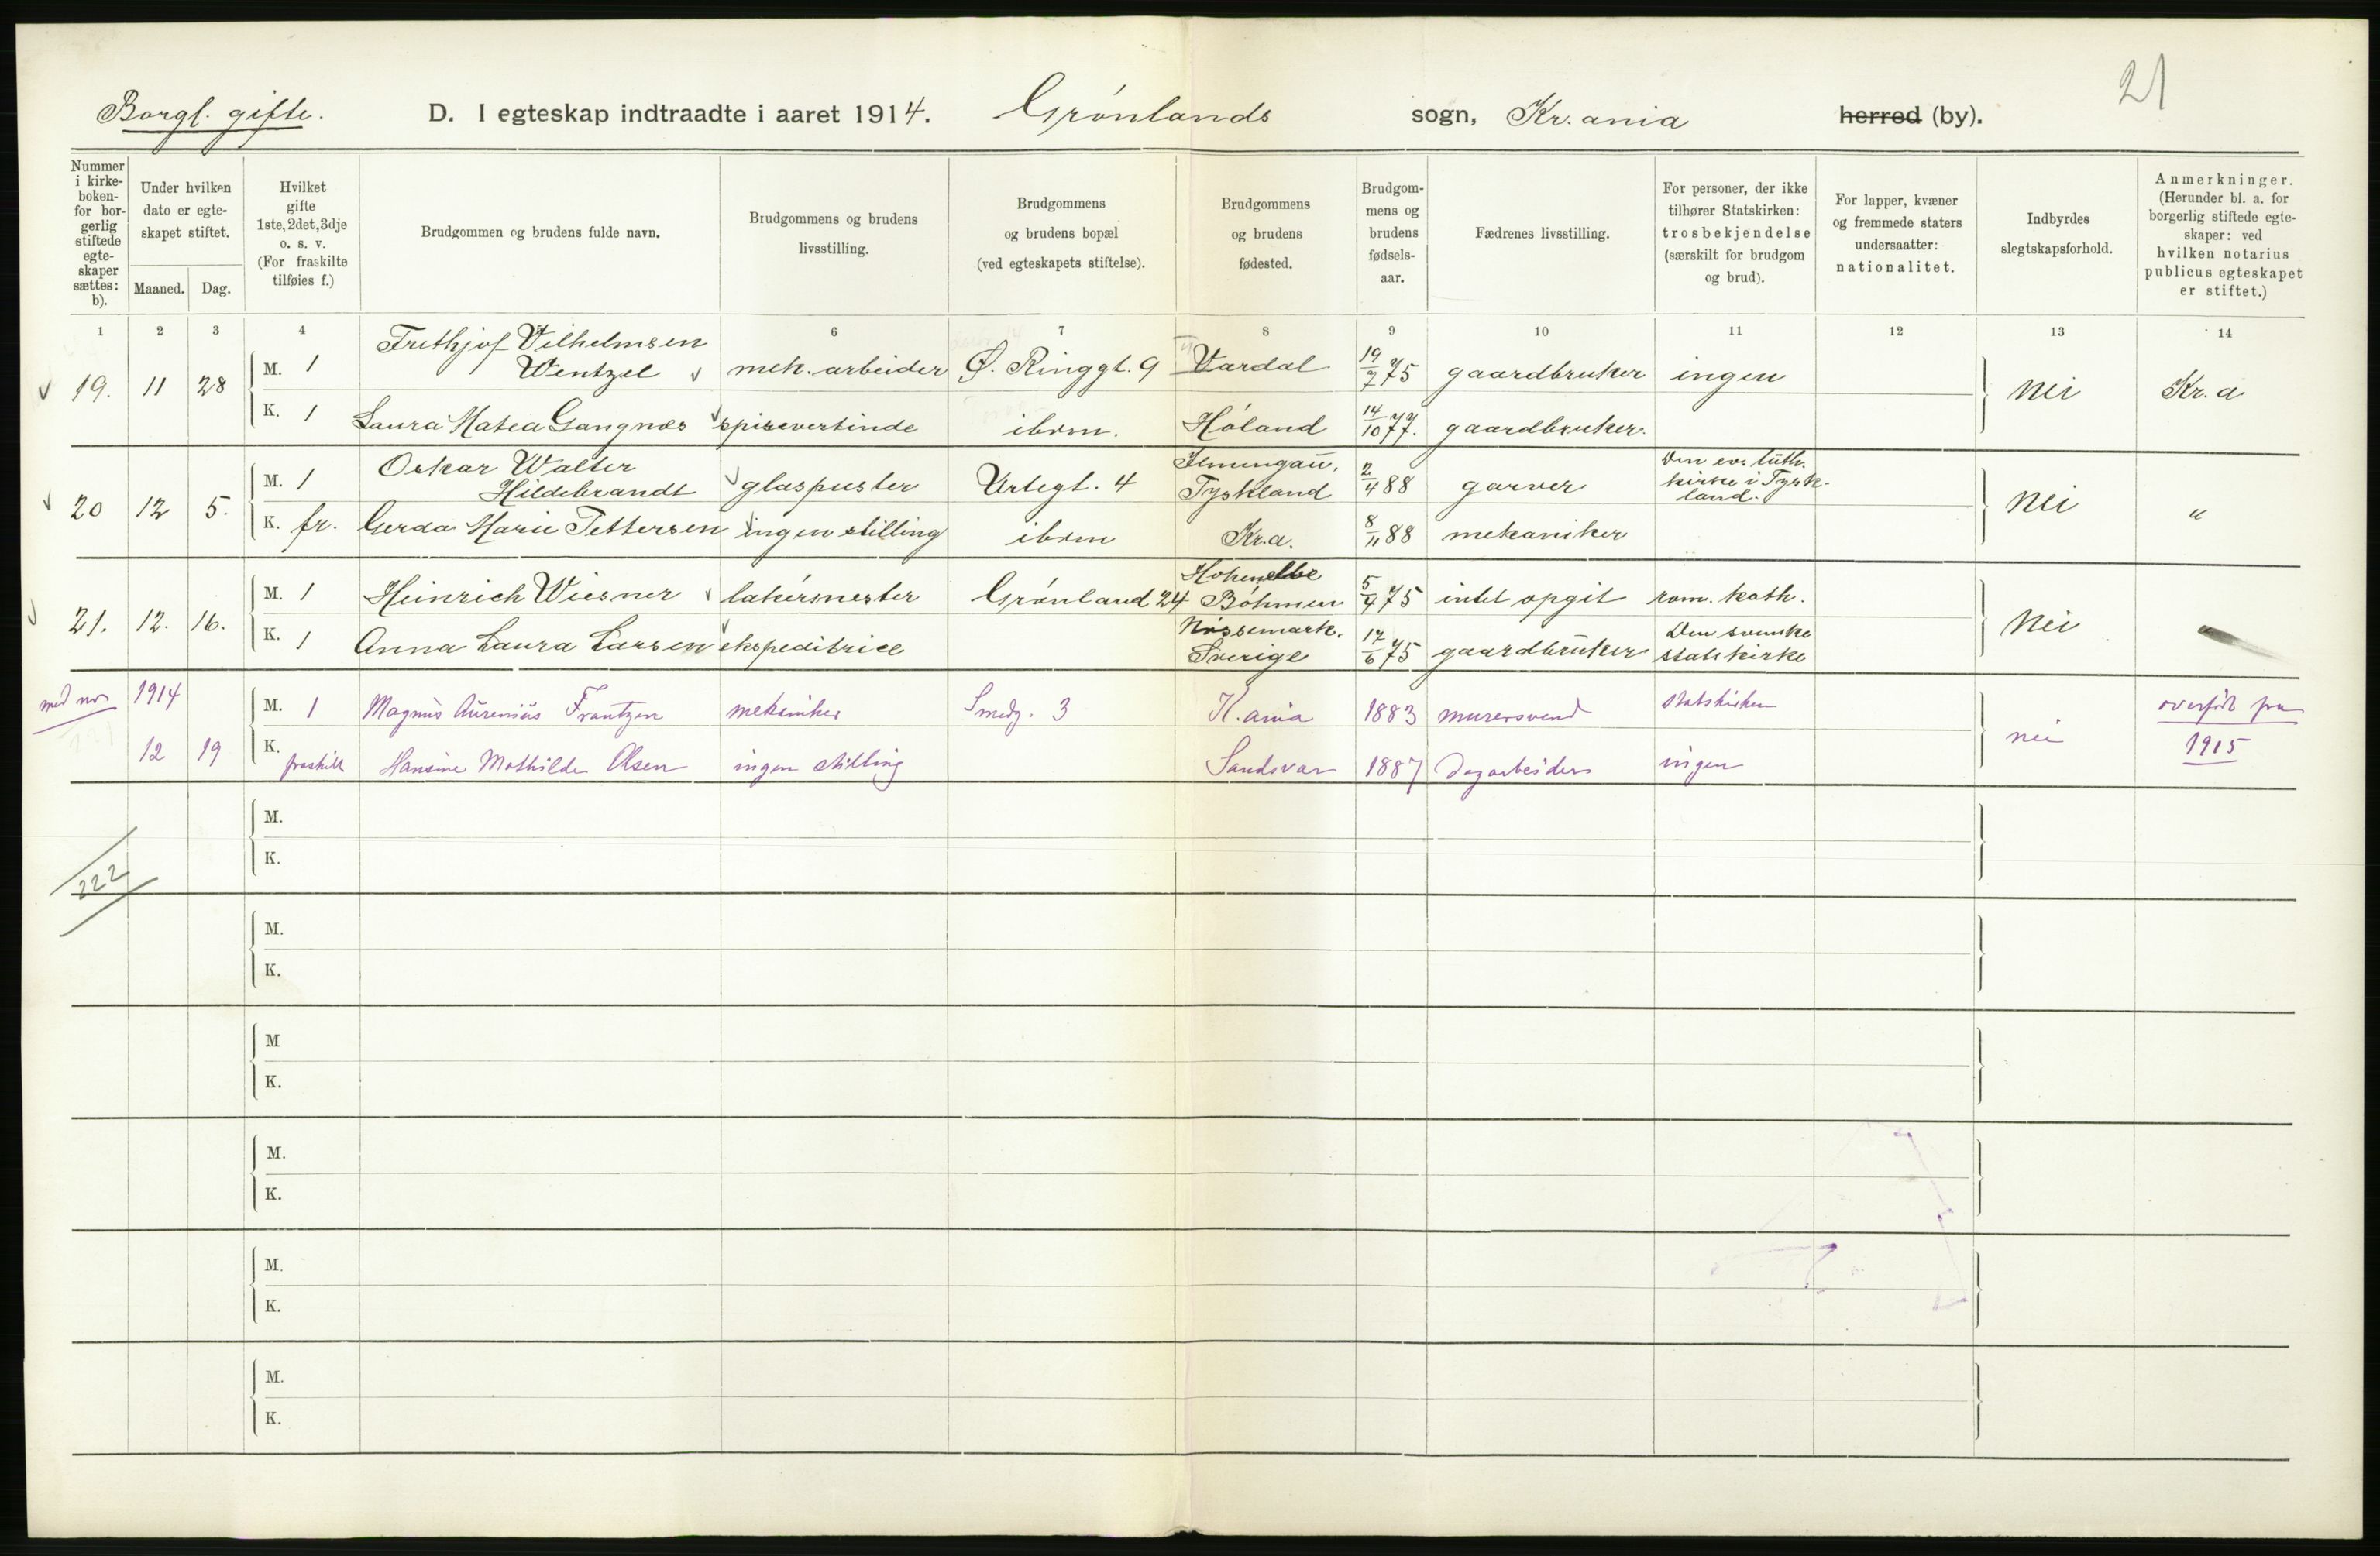 Borgl. gifte.
D. I egteskap indtraadte i aaret 1914.
Grønlands sogn, Kr.ania herred (by).
21
Nummer i kirkeboken- for borgerlig stiftede egteskaper sættes: b).
Under hvilken dato er egteskapet stiftet.
Maaned. Dag.
Hvilket gifte 1ste, 2det, 3dje o. s. v. (For fraskilte tilføies f.)
Brudgommen og brudens fulde navn.
Brudgommens og brudens livsstilling.
Brudgommens og brudens bopæl (ved egteskapets stiftelse).
Brudgommens og brudens fødested.
Brudgommens og brudens fødselsaar.
Fædrenes livsstilling.
For personer, der ikke tilhører Statskirken: trosbekjendelse (særskilt for brudgom og brud).
For lapper, kvæner og fremmede staters undersaatter: nationalitet.
Indbyrdes slegtskapsforhold.
Anmerkninger. (Herunder bl. a. for borgerlig stiftede egteskaper: ved hvilken notarius publicus egteskapet er stiftet.)
1 2 3 4 5 6 7 8 9 10 11 12 13 14
19. 11 28
M. 1 Frithjof Vilhelmsen Wentzel mek. arbeider Ø. Ringgt. 9 Vardal 19/7 75 gaardbruker ingen nei Kr.a
K. 1 Laura Matea Gangnæs spisevertinde ibdm. Høland 14/10 77. gaardbruker.
20 12 5.
M. 1 Oskar Walter Hildebrandt glaspuster Urtegt. 4 Tyskland 2/4 88 garver Den ev. luth. kirke i Tyskland. nei "
K. fr. Gerda Marie Pettersen ingen stilling ibdm Kr.a. 8/11 88 mekaniker
21. 12. 16.
M. 1 Heinrich Wiesner lakérmester Grønland 24 Hohenelbe Böhmen 5/4 75 intet opgit rom. kath. nei "
K. 1 Anna Laura Larsen ekspeditrice Nössemark. Sverige 17/6 75 gaardbruker Den svenske statskirke
med no 1914
12 19
M. 1 Magnus Aurenius Frantzen mekaniker Smedg. 3 K.ania 1883 murersvend statskirken nei overført fra 1915
K. fraskilt Hansine Mathilde Olsen ingen stilling Sandsvær 1887 dagarbeider ingen
M.
K.
222
M.
K.
M
K.
M.
K.
M.
K.
M.
K.